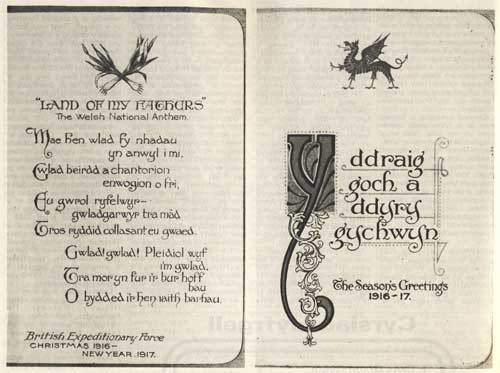 "LAND OF MY FATHERS"
The Welsh National Anthem.
Mae hen wlad fy nhadau
yn anwyl i mi,
Gwlad beirdd a chantorion
enwogion o fri;
Eu gwrol ryfelwyr~
gwladgarwyr tra mâd
Tros ryddid collasant eu gwaed.
Gwlad! gwlad! Pleidiol wyf
i'm gwlad,
Tra mor yn fur i'r bur hoff
bau
O bydded i'r hen iaith barhau.
British Expeditionary Force
CHRISTMAS 1916~
NEW YEAR. 1917.
Y ddraig
goch a
ddyry
gychwyn
The Season's Greetings
1916-17.